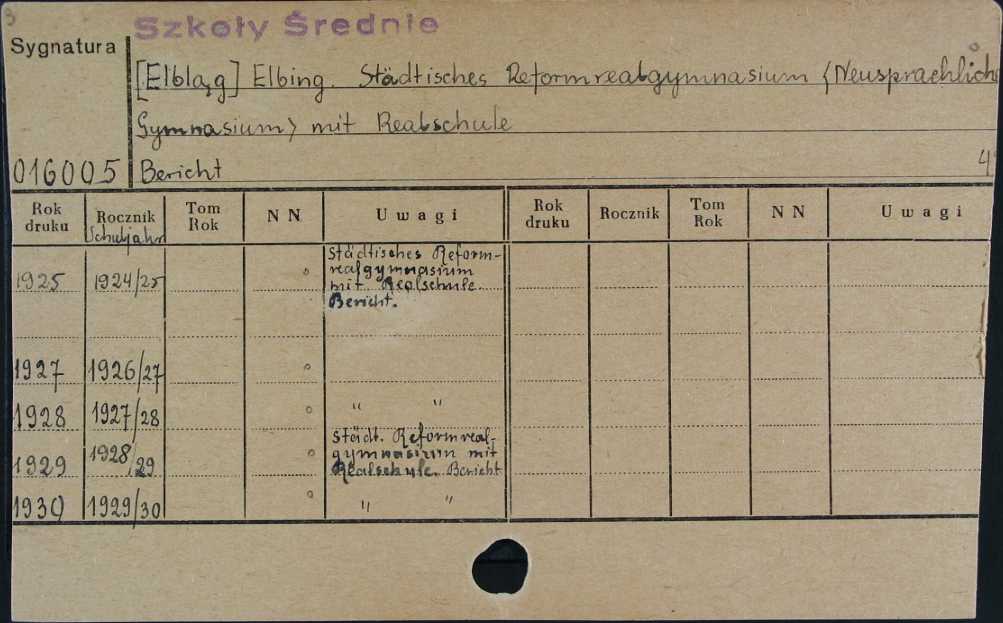 3
Szkoły Średnie
Sygnatura
[Elbląg] Elbing. Städtisches Reformrealgymnasium <Neusprachlich
Gymnasium> mit Realschule
016005 Bericht 4
Rok druku Rocznik Tom Rok NN Uwagi Rok druku Rocznik Tom Rok NN Uwagi
Schuljahr
Städtisches Reform-
realgymnasium
1925 1924/25 mit Realschule.
Bericht.
1927 1926/27
1928 1927/28 " "
Städt. Reformreal-
gymnasium mit
1929 1928/29 Realschule. Bericht
1930 1929/30 " "